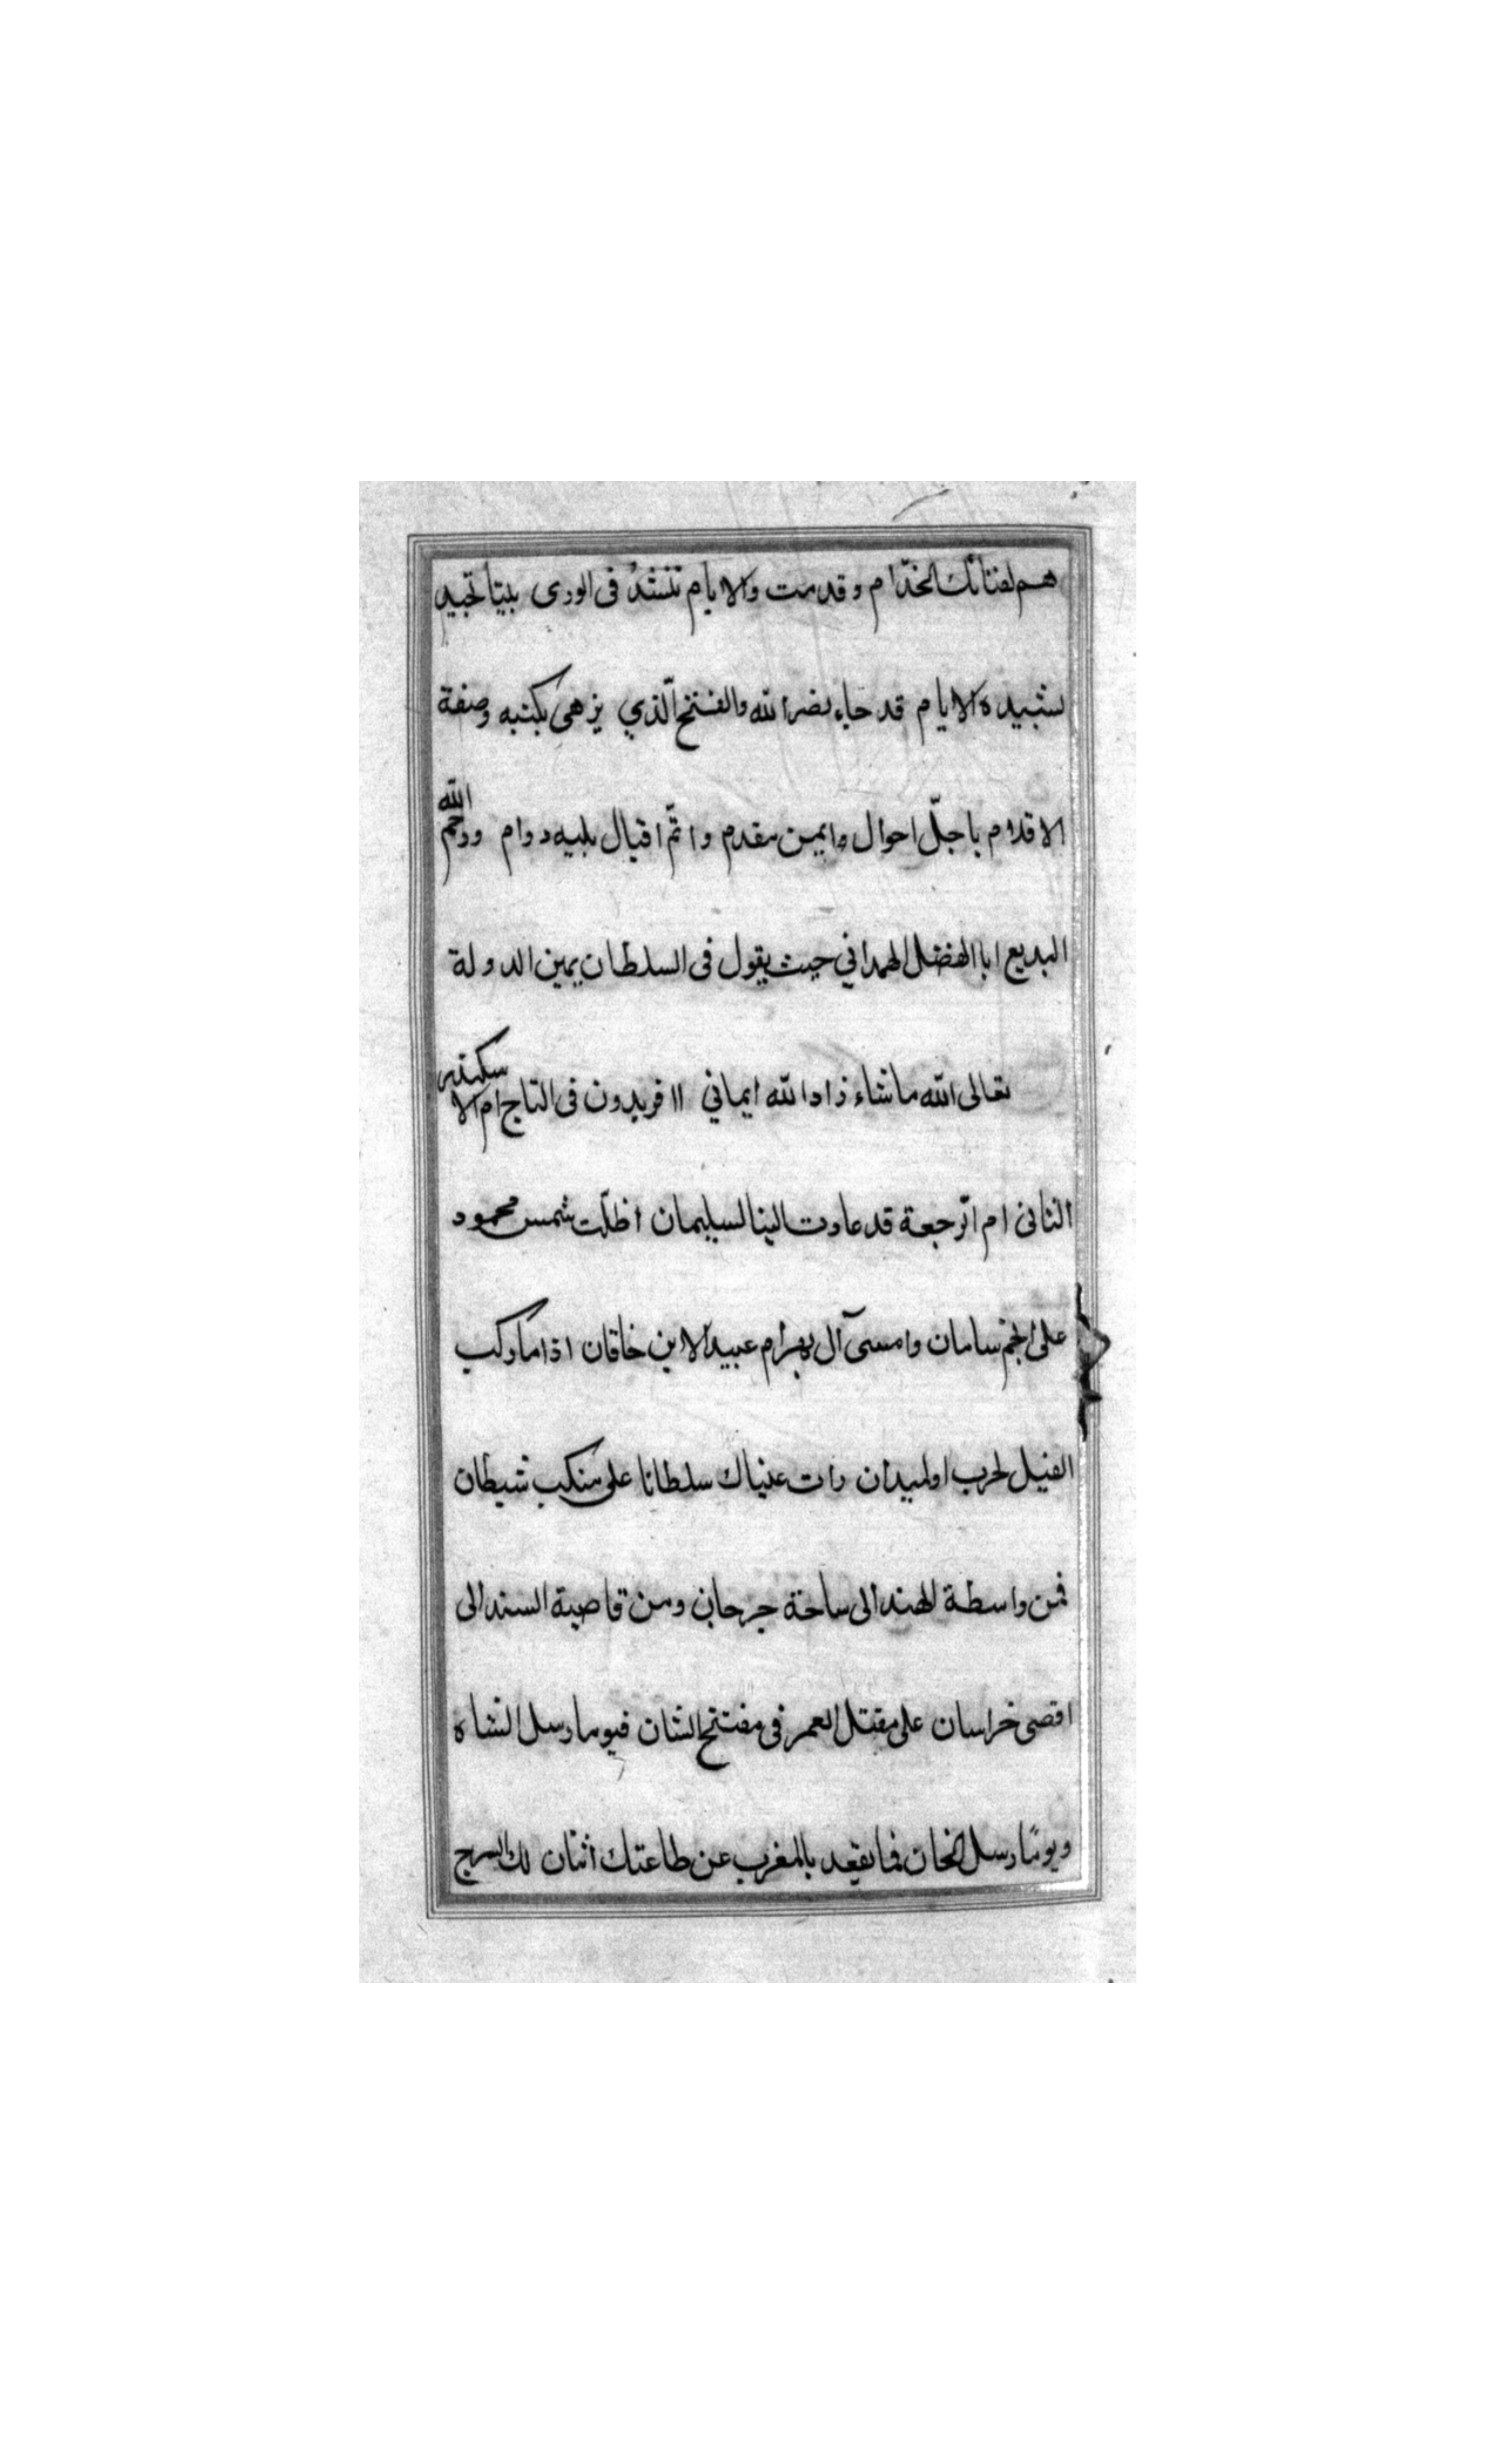 هم لفنائك الخدّام وقدمت والايام تنشدُ فى الورى بيتا تجيد
نشيده الايام قد جاء نصر الله والفتح الّذي يزهى بكتبه وصفة
الاقلام باجلّ احوال وايمن مقدم واتمّ اقبال يليه دوام ورحم الله
البديع ابا الفضل الهمداني حيث يقول فى السلطان يمين الدولة
تعالى الله ما شاء زاد الله ايماني اافريدون فى التاج ام الاسكندر
الثانى ام الرجعة قد عاودت الينا لسليمان اظلّت شمس محمود
على انجم سامان وامسى آل بهرام عبيدا لابن خاقان اذا ما ركب
الفيل لحرب او لميدان رات عنياك سلطانا على منكب شيطان
فمن واسطة الهند الى ساحة جرجان ومن قاصية السند الى
اقصى خراسان على مقتبل العمر فى مفتتح الشان فيوما رسل الشاه
ويومًا رسل الخان فما يقعد بالمغرب عن طاعتك اثنان لك السرج